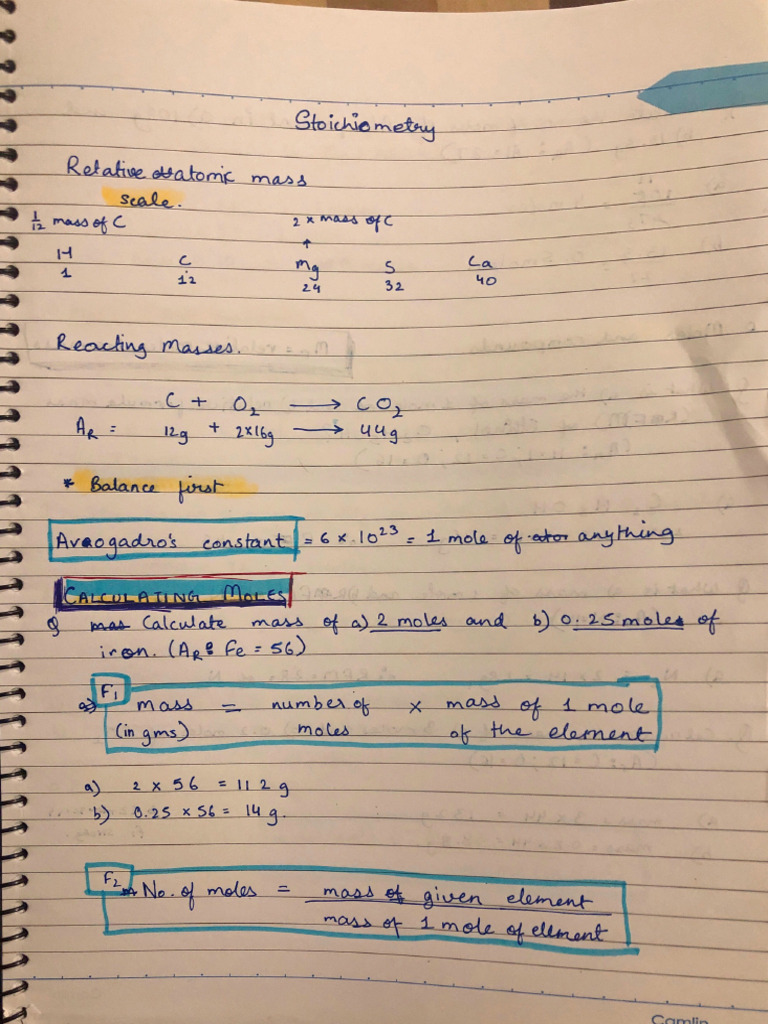 Stoichiometry
Relative atomic mass
scale.
1/12 mass of C 2 x mass of C
↑
H C Mg S Ca
1 12 24 32 40
Reacting Masses.
C + O₂ ⟶ CO₂
AR = 12g + 2x16g ⟶ 44g
* Balance first
Avaogadro's constant = 6 x 10²³ = 1 mole of anything
CALCULATING MOLES
Q Calculate mass of a) 2 moles and b) 0.25 moles of
iron. (AR: Fe = 56)
F₁
a) mass = number of x mass of 1 mole
(in gms) moles of the element
a) 2 x 56 = 112 g
b) 0.25 x 56 = 14 g.
F₂
No. of moles = mass of given element
mass of 1 mole of element
Camlin